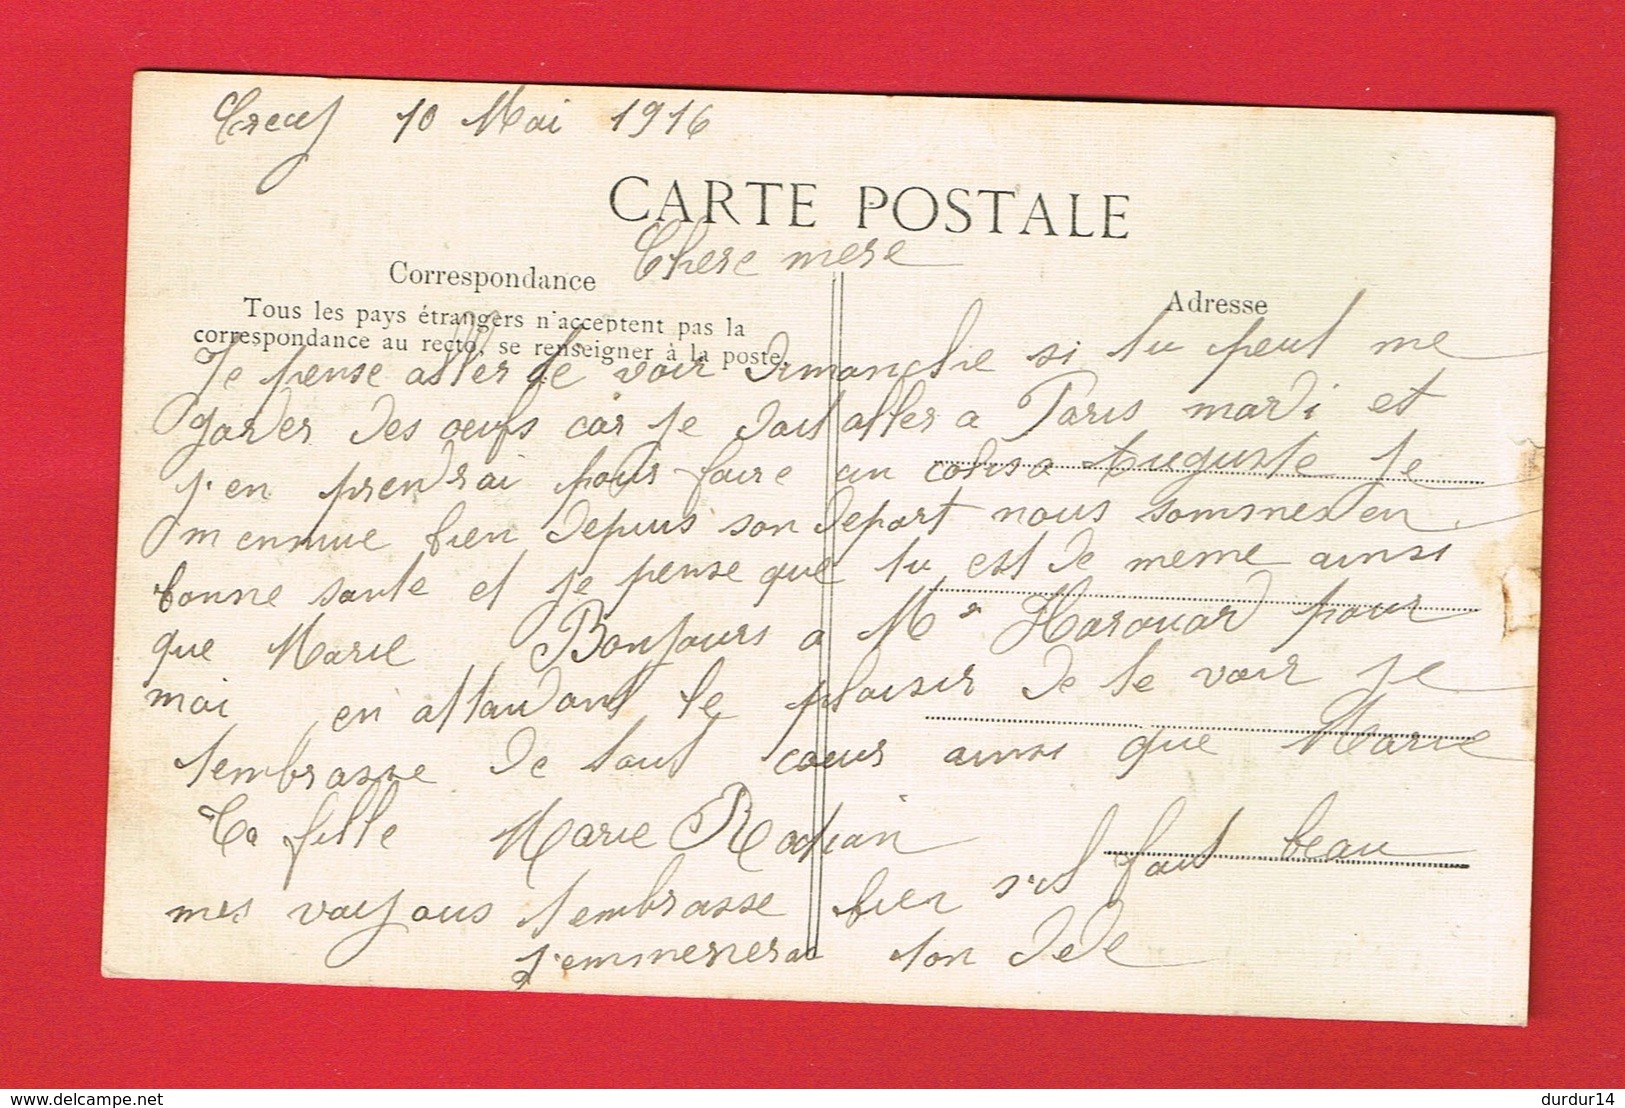 10 Mai 1916
CARTE POSTALE
Chere mere
Correspondance
Tous les pays étrangers n'acceptent pas la
correspondance au recto, se renseigner à la poste.
Adresse
Je pense aller te voir dimanche si tu peut me
garder des oeufs car je doit aller a Paris mardi et
j'en prendrai pour faire un colis a Auguste je
m ennuie bien depuis son depart nous sommes en
bonne sante et je pense que tu est de meme ainsi
que Marie Bonjours a Mr Harouard pour
moi en attandant le plaisir de te voir je
t'embrasse de tout coeur ainsi que Marie
Ta fille Marie
mes voyous t embrasse bien s'il fait beau
j'emmenerai ton Dede
delcampe.net
durdur14